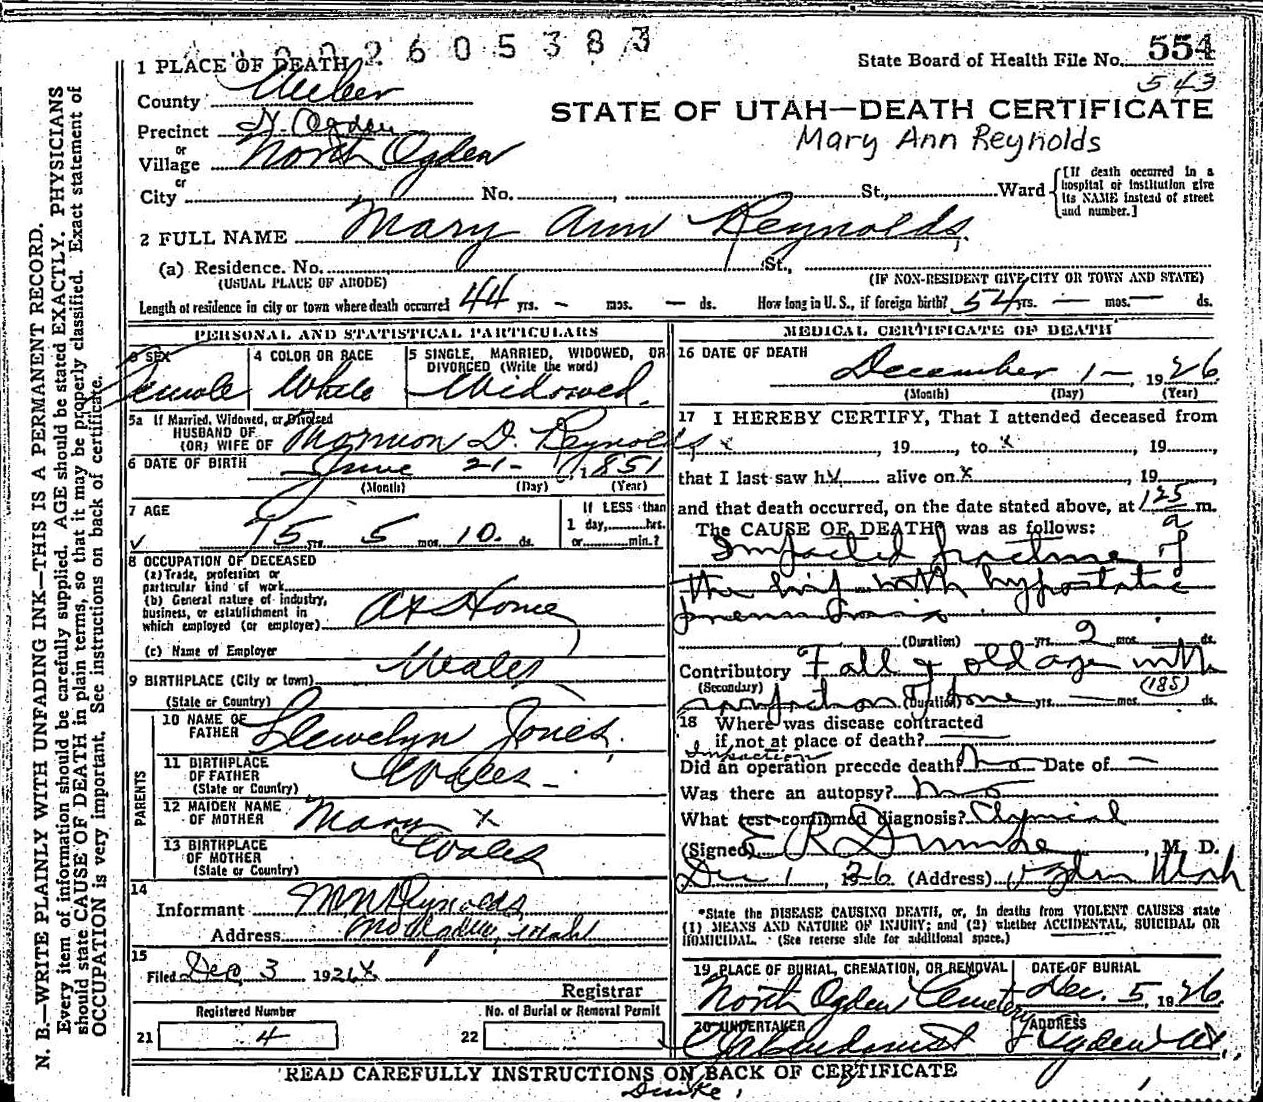 2605383
1 PLACE OF DEATH
State Board of Health File No. 554
543
County Weber
STATE OF UTAH—DEATH CERTIFICATE
Precinct N. Ogden
Mary Ann Reynolds
or
Village North Ogden
or
City No. , St., Ward
[If death occurred in a
hospital or institution give
its NAME instead of street
and number.]
2 FULL NAME Mary Ann Reynolds
(a) Residence. No. St.,
(USUAL PLACE OF ABODE) (IF NON-RESIDENT GIVE CITY OR TOWN AND STATE)
Length of residence in city or town where death occurred 44 yrs. - mos. - ds. How long in U. S., if foreign birth? 54 yrs. - mos. - ds.
PERSONAL AND STATISTICAL PARTICULARS
3 SEX
Female
4 COLOR OR RACE
White
5 SINGLE, MARRIED, WIDOWED, OR
DIVORCED (Write the word)
Widowed.
5a If Married, Widowed, or Divorced
HUSBAND OF
(OR) WIFE OF D. Reynolds
6 DATE OF BIRTH June 21 - , 1851
(Month) (Day) (Year)
7 AGE
75 yrs. 5 mos. 10. ds.
If LESS than
1 day,........hrs.
or........min.?
8 OCCUPATION OF DECEASED
(a) Trade, profession or
particular kind of work
(b) General nature of industry,
business, or establishment in
which employed (or employer) At Home
(c) Name of Employer
9 BIRTHPLACE (City or town) Wales
(State or Country)
PARENTS
10 NAME OF
FATHER Llewelyn Jones.
11 BIRTHPLACE
OF FATHER Wales -
(State or Country)
12 MAIDEN NAME
OF MOTHER Mary x
13 BIRTHPLACE
OF MOTHER Wales
(State or Country)
14
Informant Reynolds
Address No Ogden, Utah
15
Filed Dec, 3 1926
Registrar
Registered Number
21 4
No. of Burial or Removal Permit
22
MEDICAL CERTIFICATE OF DEATH
16 DATE OF DEATH
December 1 - , 1926
(Month) (Day) (Year)
17 I HEREBY CERTIFY, That I attended deceased from
x , 19 , to x , 19 ,
that I last saw h alive on x , 19 ,
and that death occurred, on the date stated above, at 125 a m.
The CAUSE OF DEATH* was as follows:
Impacted fracture of
the hip with hypostatic
pneumonia
(Duration) yrs. 2 mos. ds.
Contributory Fall & old age with
(Secondary) (185)
(Duration) yrs. mos. ds.
18 Where was disease contracted
if not at place of death?
Impaction
Did an operation precede death? No Date of -
Was there an autopsy? No
What test confirmed diagnosis? Clinical
(Signed) E R Dumke, M. D.
Dec 1 , 1926 (Address) Ogden Utah
*State the DISEASE CAUSING DEATH, or, in deaths from VIOLENT CAUSES state
(1) MEANS AND NATURE OF INJURY; and (2) whether ACCIDENTAL, SUICIDAL OR
HOMICIDAL. (See reverse side for additional space.)
19 PLACE OF BURIAL, CREMATION, OR REMOVAL
North Ogden Cemetery
DATE OF BURIAL
Dec. 5, 1926
20 UNDERTAKER
ADDRESS
Ogden Ut.
READ CAREFULLY INSTRUCTIONS ON BACK OF CERTIFICATE
Dumke
N. B.—WRITE PLAINLY WITH UNFADING INK—THIS IS A PERMANENT RECORD.
Every item of information should be carefully supplied. AGE should be stated EXACTLY. PHYSICIANS
should state CAUSE OF DEATH in plain terms, so that it may be properly classified. Exact statement of
OCCUPATION is very important. See instructions on back of certificate.